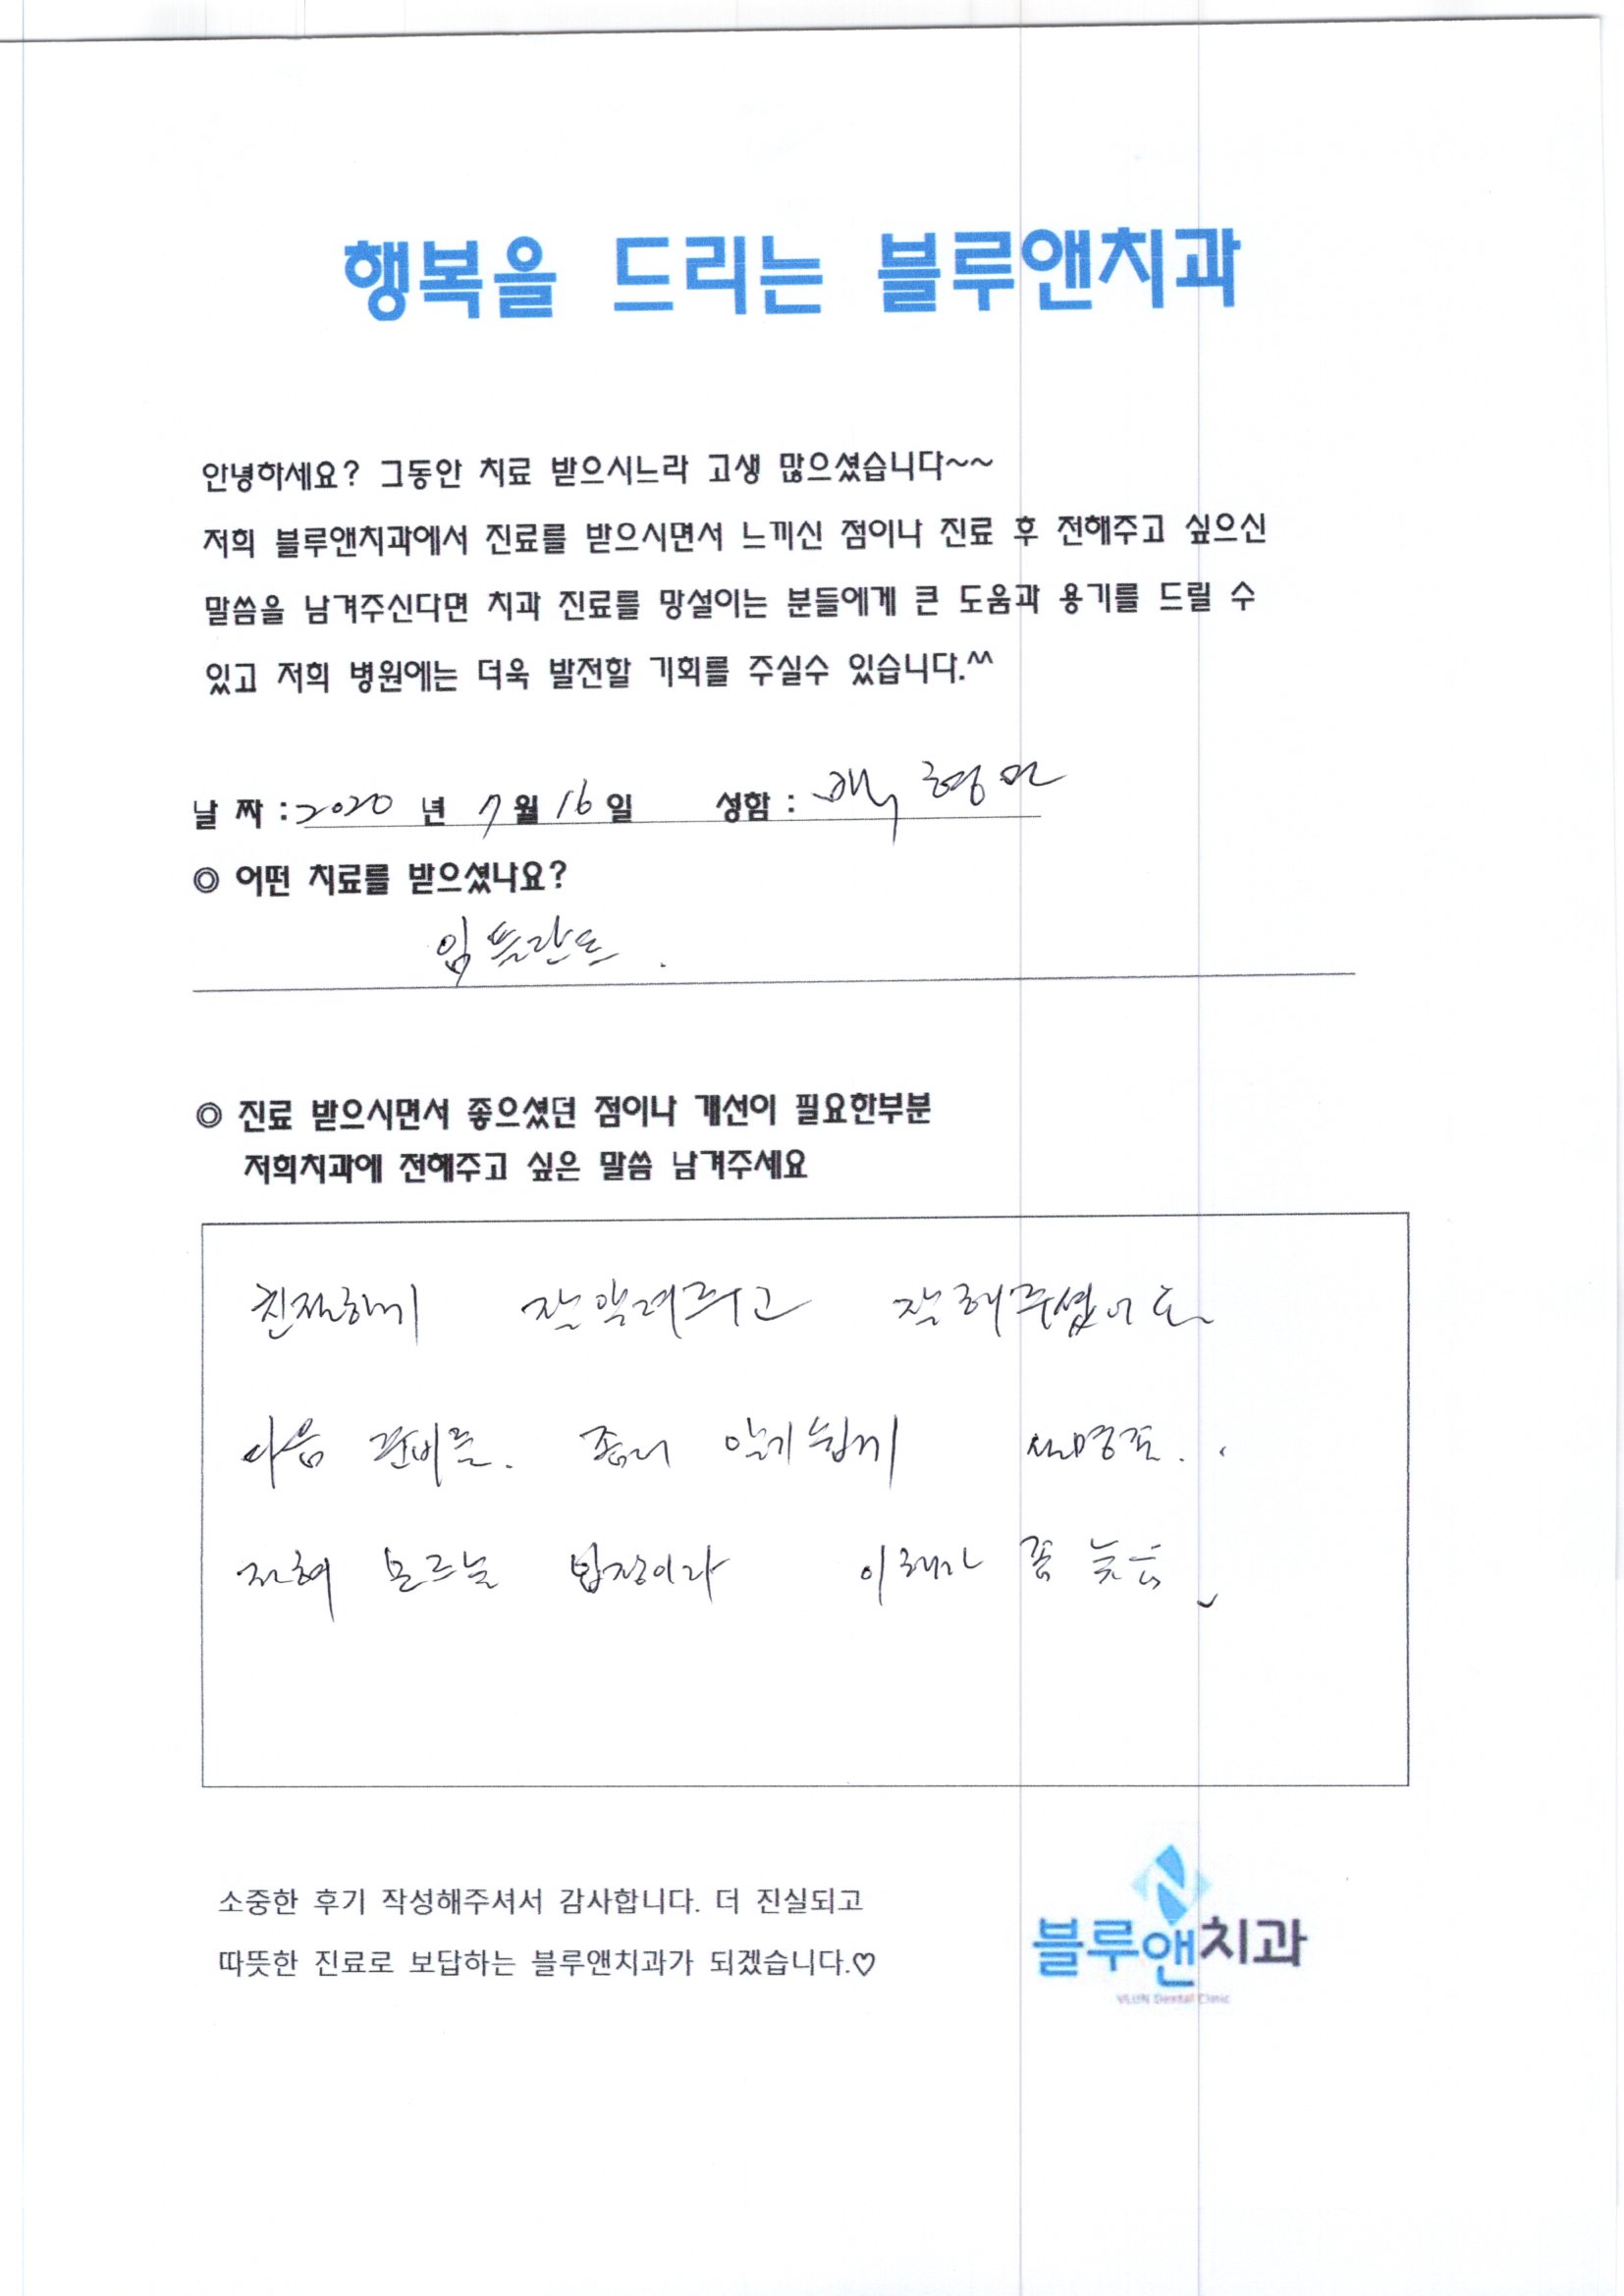 행복을 드리는 블루앤치과
안녕하세요? 그동안 치료 받으시느라 고생 많으셨습니다~~
저희 블루앤치과에서 진료를 받으시면서 느끼신 점이나 진료 후 전해주고 싶으신
말씀을 남겨주신다면 치과 진료를 망설이는 분들에게 큰 도움과 용기를 드릴 수
있고 저희 병원에는 더욱 발전할 기회를 주실수 있습니다.^^
날 짜 : 2020 년 7 월 16 일 성함 :
◎ 어떤 치료를 받으셨나요?
임플란트.
◎ 진료 받으시면서 좋으셨던 점이나 개선이 필요한부분
저희치과에 전해주고 싶은 말씀 남겨주세요
친절하게 잘 알려주고 잘 해주셨어도
다음 준비를. 좀더 알기쉽게 설명좀..
전혀 모르는 입장이라 이해가 좀 늦음
소중한 후기 작성해주셔서 감사합니다. 더 진실되고
따뜻한 진료로 보답하는 블루앤치과가 되겠습니다.♡
블루앤치과
Dental Clinic